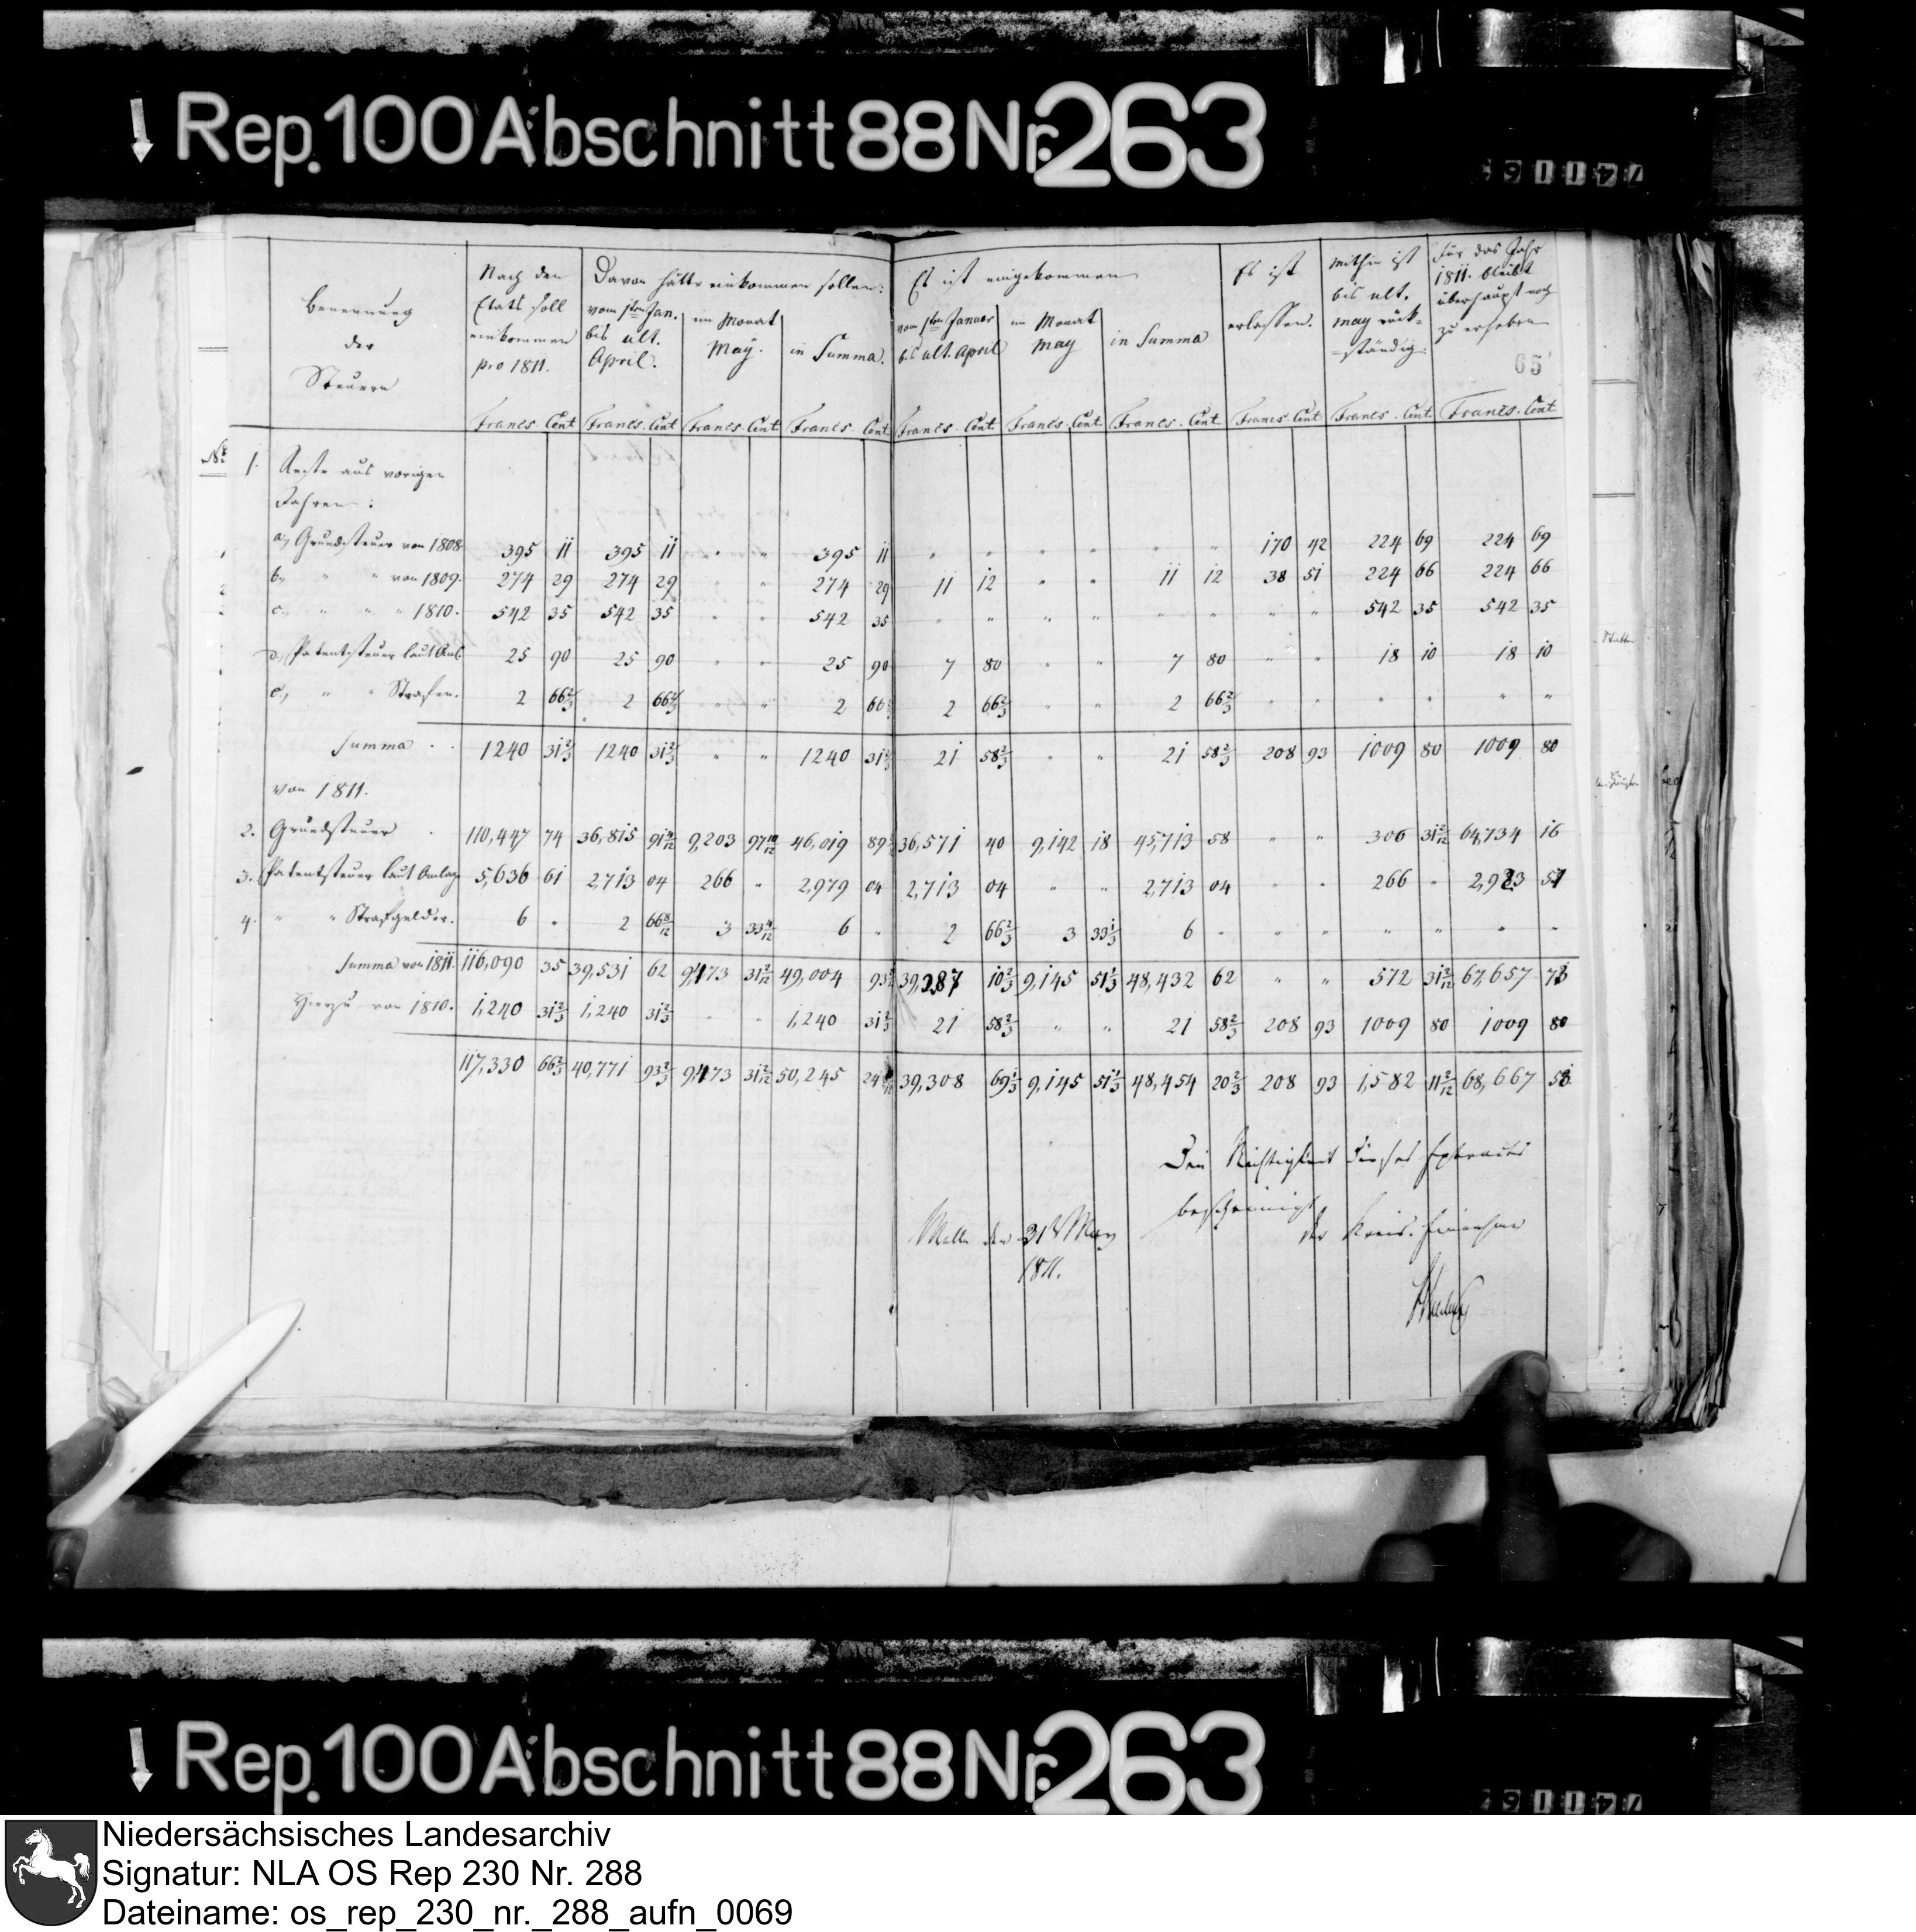 Rep. 100 Abschnitt 88 Nr. 263
Benennung der Steuern
Nach den Etats soll einkommen pro 1811.
Davon hätte einkommen sollen:
vom 1ten Jan. bis ult. April.
im Monat May.
in Summa.
Es ist eingekommen
vom 1ten Januar bis ult. April
im Monat May
in Summa
Es ist erlassen.
mithin ist bis ult. May rück-ständig.
für das Jahr 1811. bleibt überhaupt noch zu erheben
65
Francs Cent Francs. Cent Francs. Cent Francs Cent Francs. Cent Francs. Cent Francs. Cent Francs. Cent Francs. Cent Francs. Cent
No
1. Reste aus vorigen
Jahren:
a., Grundsteuer von 1808. 395 11 395 11 " " 395 11 " " " " " " 170 42 224 69 224 69
b., " " von 1809. 274 29 274 29 " " 274 29 11 12 " " 11 12 38 51 224 66 224 66
c., " " " 1810. 542 35 542 35 " " 542 35 " " " " " " " " 542 35 542 35
d., Patentsteuer laut Anl. 25 90 25 90 " " 25 90 7 80 " " 7 80 " " 18 10 18 10
e., " " Strafen. 2 66 2/3 2 66 2/3 " " 2 66 2 66 2/3 " " 2 66 2/3 " " " " " "
Summa 1240 31 2/3 1240 31 2/3 " " 1240 31 2/3 21 58 2/3 " " 21 58 2/3 208 93 1009 80 1009 80
von 1811.
2. Grundsteuer 110,447 74 36,815 91 4/12 9,203 97 10/12 46,019 89 36,571 40 9,142 18 45,713 58 " " 306 31 2/12 64,734 16
3. Patentsteuer laut Anlage 5,636 61 2,713 04 266 " 2,979 04 2,713 04 " " 2,713 04 " " 266 " 2,923 57
4. " " Strafgelder. 6 " 2 66 8/12 3 33 4/12 6 " 2 66 2/3 3 33 1/3 6 " " " " " " "
Summa von 1811. 116,090 35 39,531 62 9,473 31 2/12 49,004 93 39,287 10 2/3 9,145 51 1/3 48,432 62 " " 572 31 2/12 67,657 73
Hierzu von 1810. 1,240 31 2/3 1,240 31 2/3 " " 1,240 31 2/3 21 58 2/3 " " 21 58 2/3 208 93 1009 80 1009 80
117,330 66 2/3 40,771 93 2/3 9,473 31 2/12 50,245 24 39,308 69 1/3 9,145 51 1/3 48,454 20 2/3 208 93 1,582 11 2/12 68,667 53
Die Richtigkeit dieses Extracts
bescheinigt
Melle den 31t May
1811.
der Kreis-Einnehmer
Rep. 100 Abschnitt 88 Nr. 263
Niedersächsisches Landesarchiv
Signatur: NLA OS Rep 230 Nr. 288
Dateiname: os_rep_230_nr._288_aufn_0069